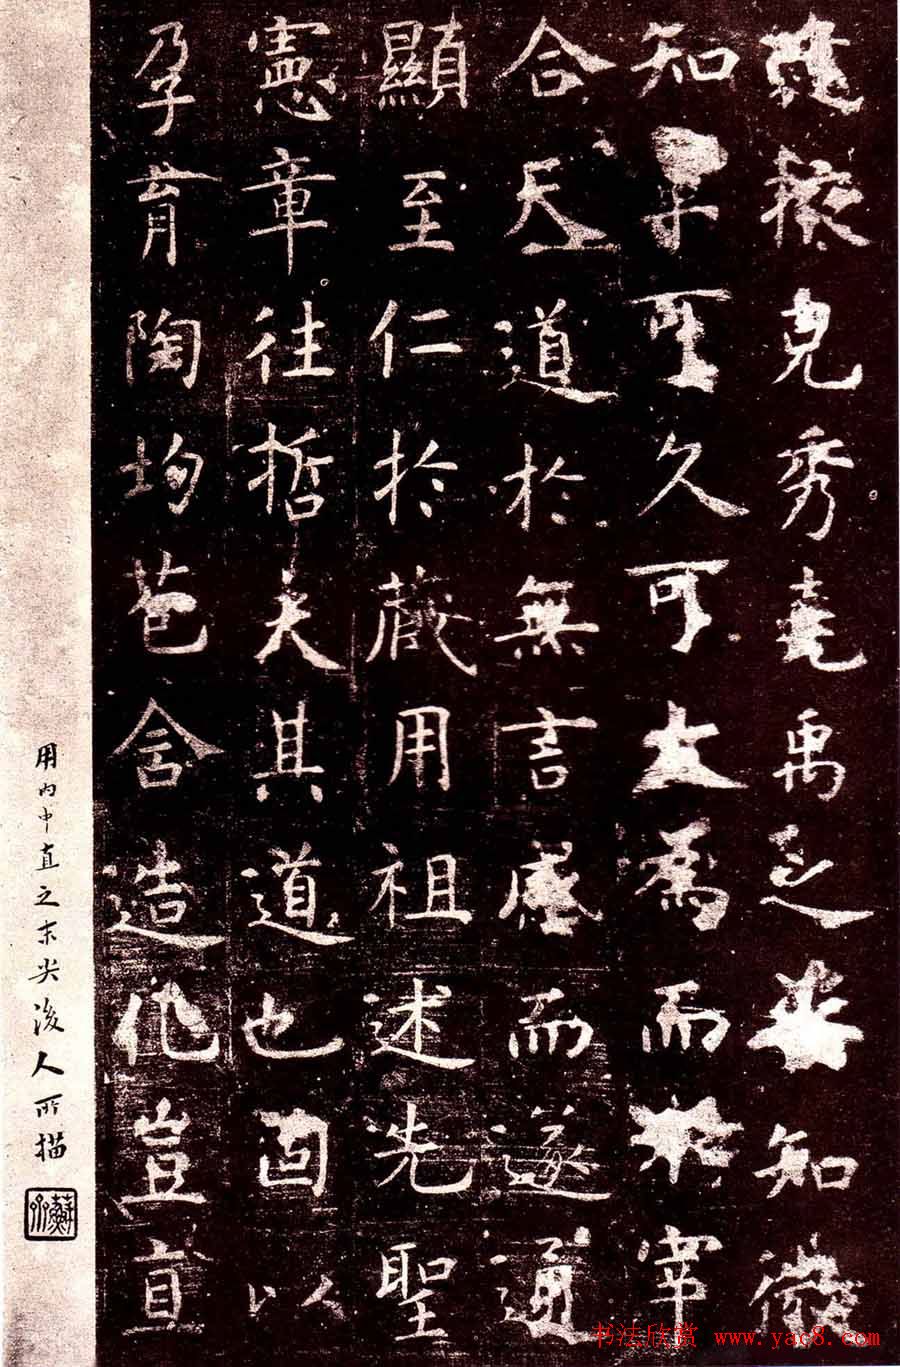 克秀堯禹之姿知微
知章可久可大為而不宰
合天道於無言感而遂通
顯至仁於藏用祖述先聖
憲章往哲夫其道也固以
孕育陶均苞含造化豈直
用內中直之末尖後人所描
书法欣赏 www.yac8.com